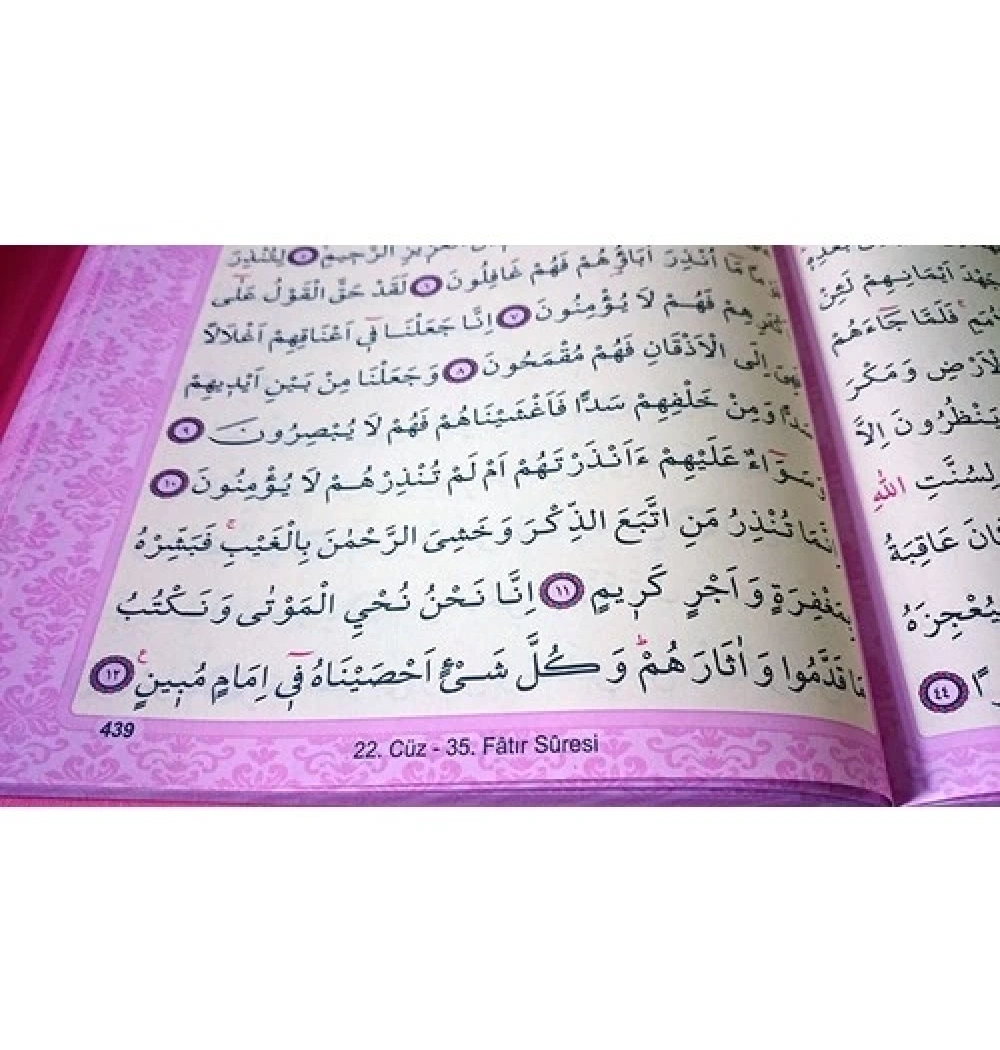 الرَّحِيمِ ٥ لِتُنْذِرَ
مَٓا اُنْذِرَ اٰبَٓاؤُ۬هُمْ فَهُمْ غَافِلُونَ ٦ لَقَدْ حَقَّ الْقَوْلُ عَلٰٓى
فَهُمْ لَا يُؤْمِنُونَ ٧ اِنَّا جَعَلْنَا فٖٓي اَعْنَاقِهِمْ اَغْلَالًا
فَهِيَ اِلَى الْاَذْقَانِ فَهُمْ مُقْمَحُونَ ٨ وَجَعَلْنَا مِنْ بَيْنِ اَيْدٖيهِمْ
سَدًّا وَمِنْ خَلْفِهِمْ سَدًّا فَاَغْشَيْنَاهُمْ فَهُمْ لَا يُبْصِرُونَ ٩
وَسَوَٓاءٌ عَلَيْهِمْ ءَاَنْذَرْتَهُمْ اَمْ لَمْ تُنْذِرْهُمْ لَا يُؤْمِنُونَ ١٠
اِنَّمَا تُنْذِرُ مَنِ اتَّبَعَ الذِّكْرَ وَخَشِيَ الرَّحْمٰنَ بِالْغَيْبِۚ فَبَشِّرْهُ
بِمَغْفِرَةٍ وَاَجْرٍ كَرٖيمٍ ١١ اِنَّا نَحْنُ نُحْيِ الْمَوْتٰى وَنَكْتُبُ
مَا قَدَّمُوا وَاٰثَارَهُمْۜ وَكُلَّ شَيْءٍ اَحْصَيْنَاهُ فٖٓي اِمَامٍ مُبٖينٍ ع ١٢
439
22. Cüz - 35. Fâtır Sûresi
جَهْدَ اَيْمَانِهِمْ لَئِنْ
فَلَمَّا جَٓاءَهُمْ
الْاَرْضِ وَمَكْرَ
يَنْظُرُونَ اِلَّا
لِسُنَّتِ اللّٰهِ
عَاقِبَةُ
لِيُعْجِزَهُ
٤٤